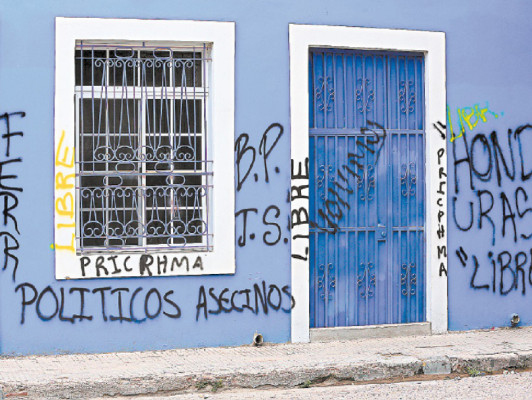 FERR
LIBRE
PRICPHMA
POLITICOS ASECINOS
B.P.
J.S.
LIBRE
"PRICPHMA
LIBR
HOND
URAS
"LIBR